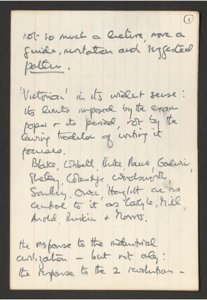 1
not so much a lecture, more a
guide, invitation and suggested
pattern.
'Victorian' in its widest sense:
its limits imposed by the
paper & its period, not by the
living tradition of writing it
focuses.
Blake, Cobbett, Burke, Paine, Godwin,
Shelley, Coleridge, Wordsworth,
Southey, Owen, Hazlitt are as
central to it as Carlyle, Mill,
Arnold, Ruskin & Morris.
The response to the industrial
civilization – but not only:
the response to the 2 revolutions –